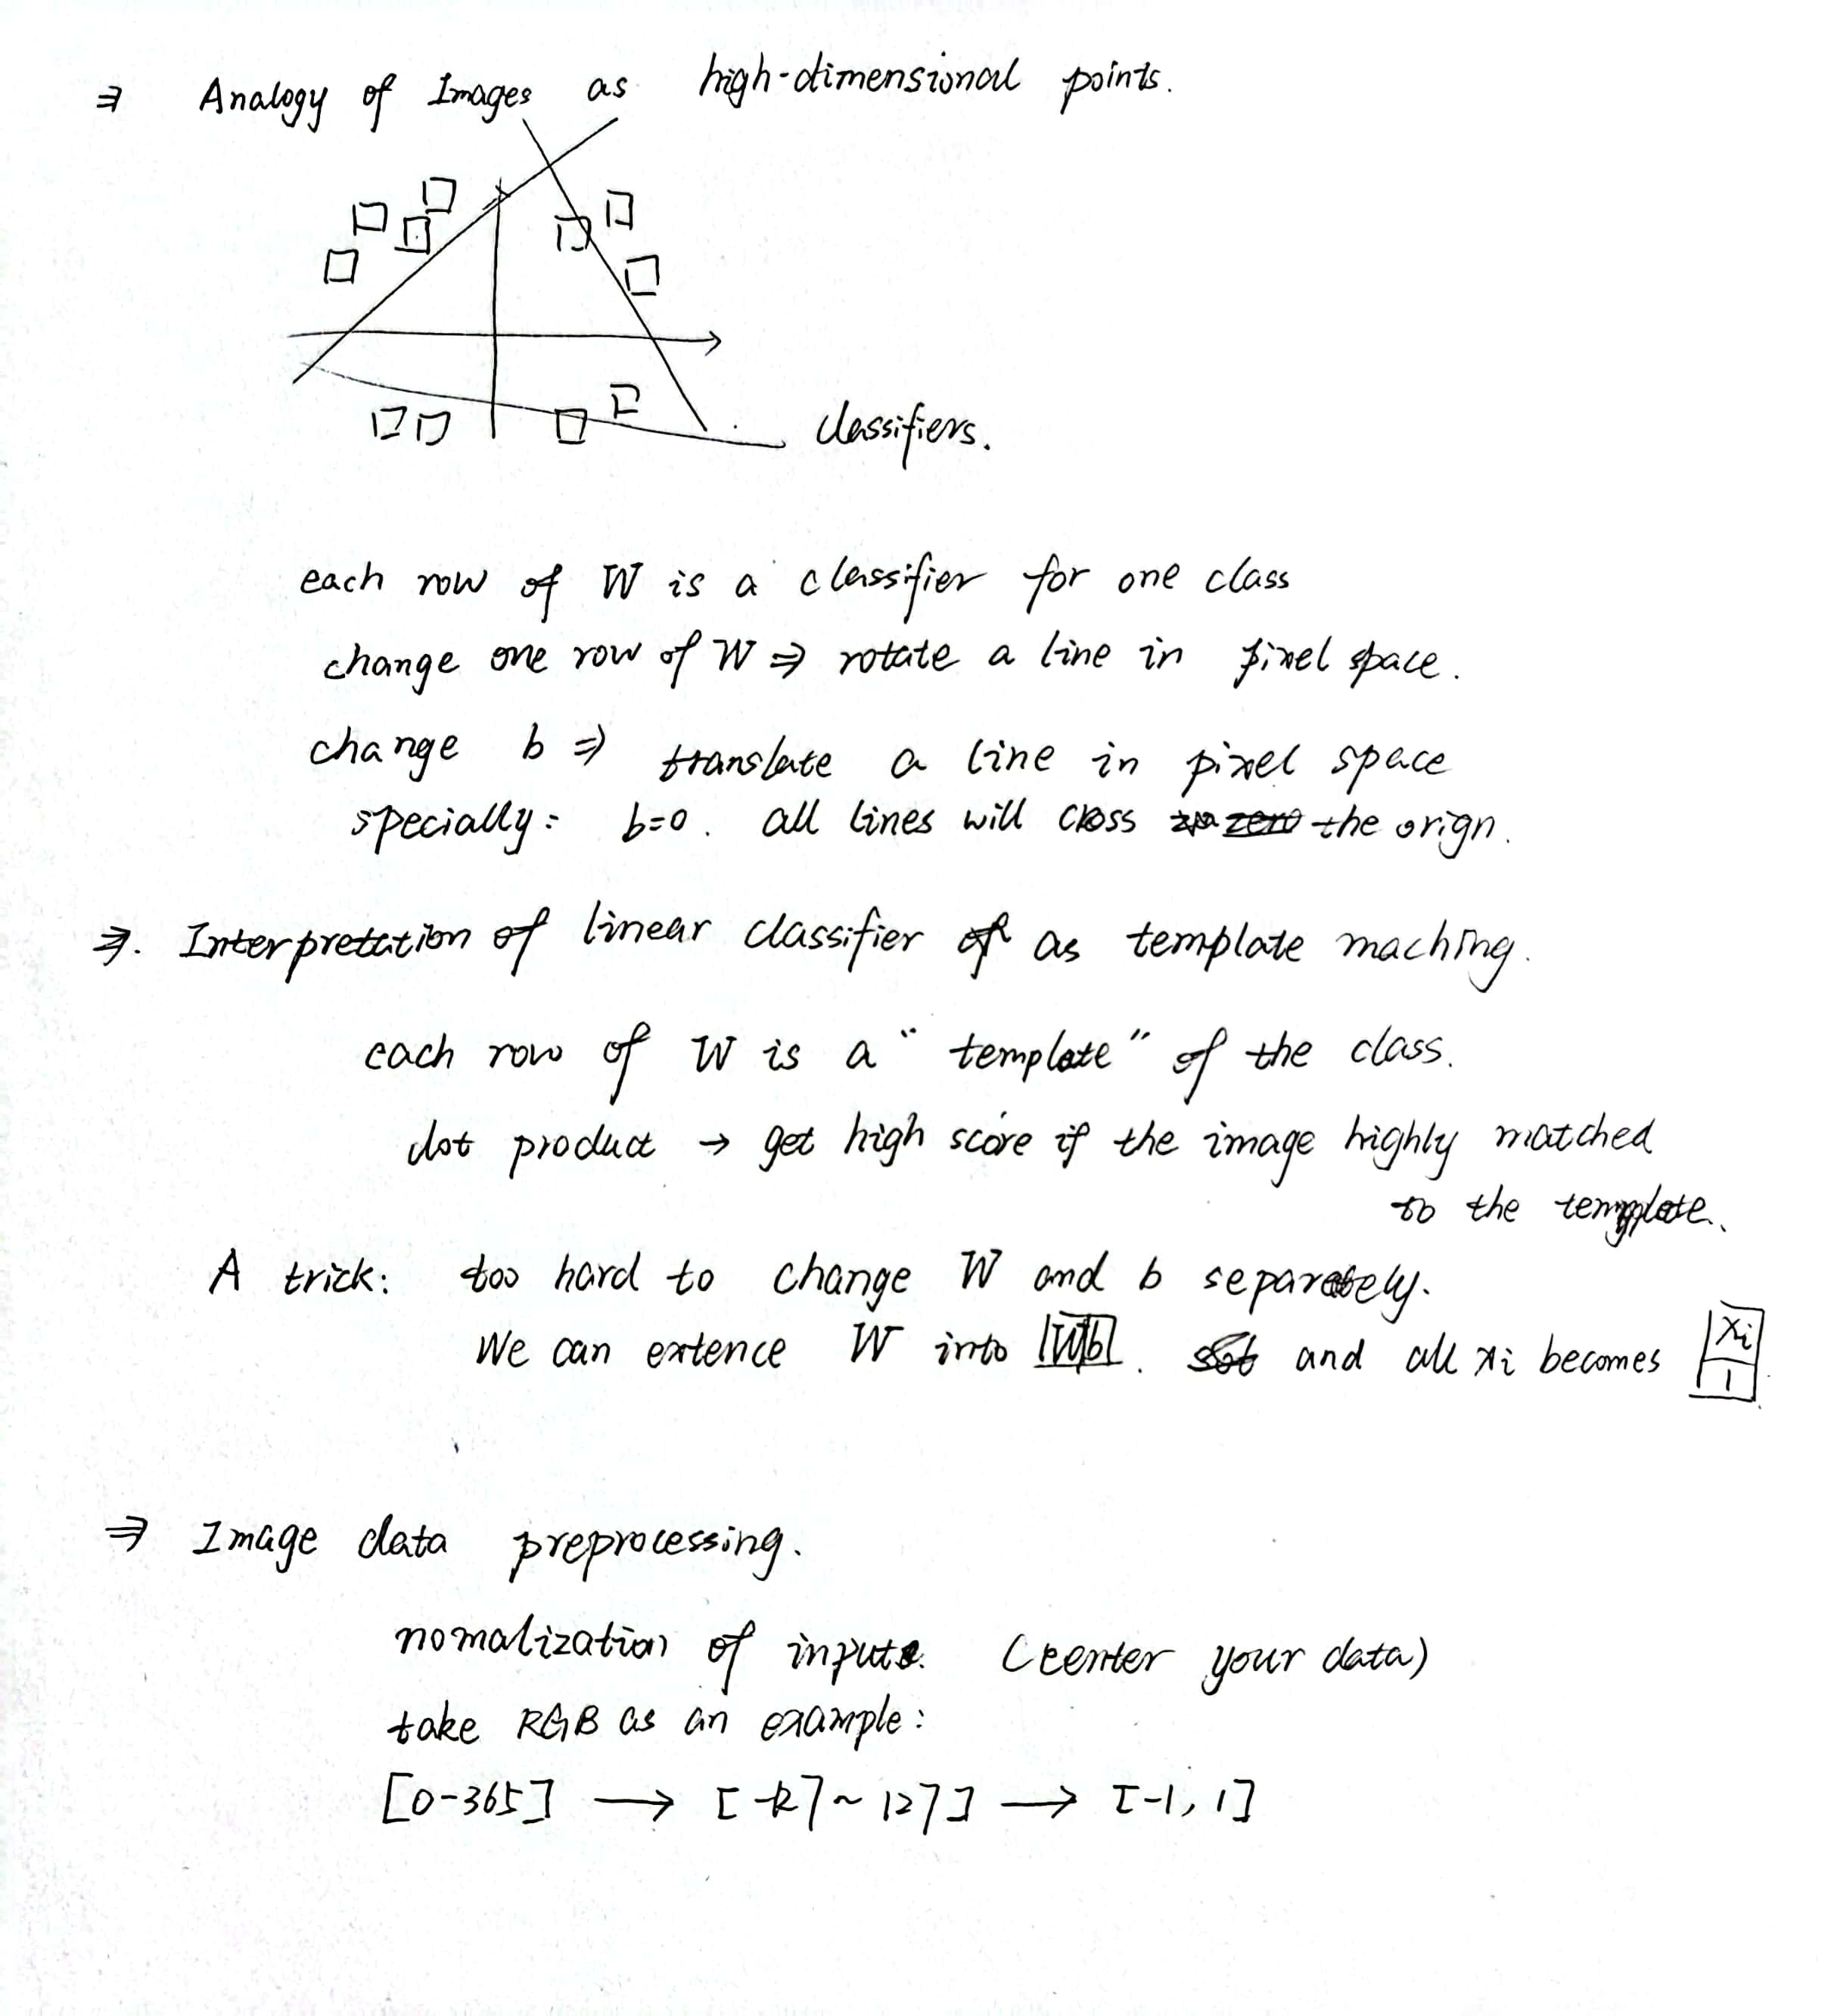 ⇒ Analogy of Images as high-dimensional points.
classifiers.
each row of W is a classifier for one class
change one row of W ⇒ rotate a line in pixel space.
change b ⇒ translate a line in pixel space
specially: b=0. all lines will cross the orign.
⇒. Interpretation of linear classifier as template maching.
each row of W is a "template" of the class.
dot product → get high score if the image highly matched
to the template.
A trick: too hard to change W and b separately.
We can extence W into |W|b|. and all xi becomes
xi
1
⇒ Image data preprocessing.
nomalization of inputs. (center your data)
take RGB as an example:
[0-365] → [-127 ~ 127] → [-1, 1]